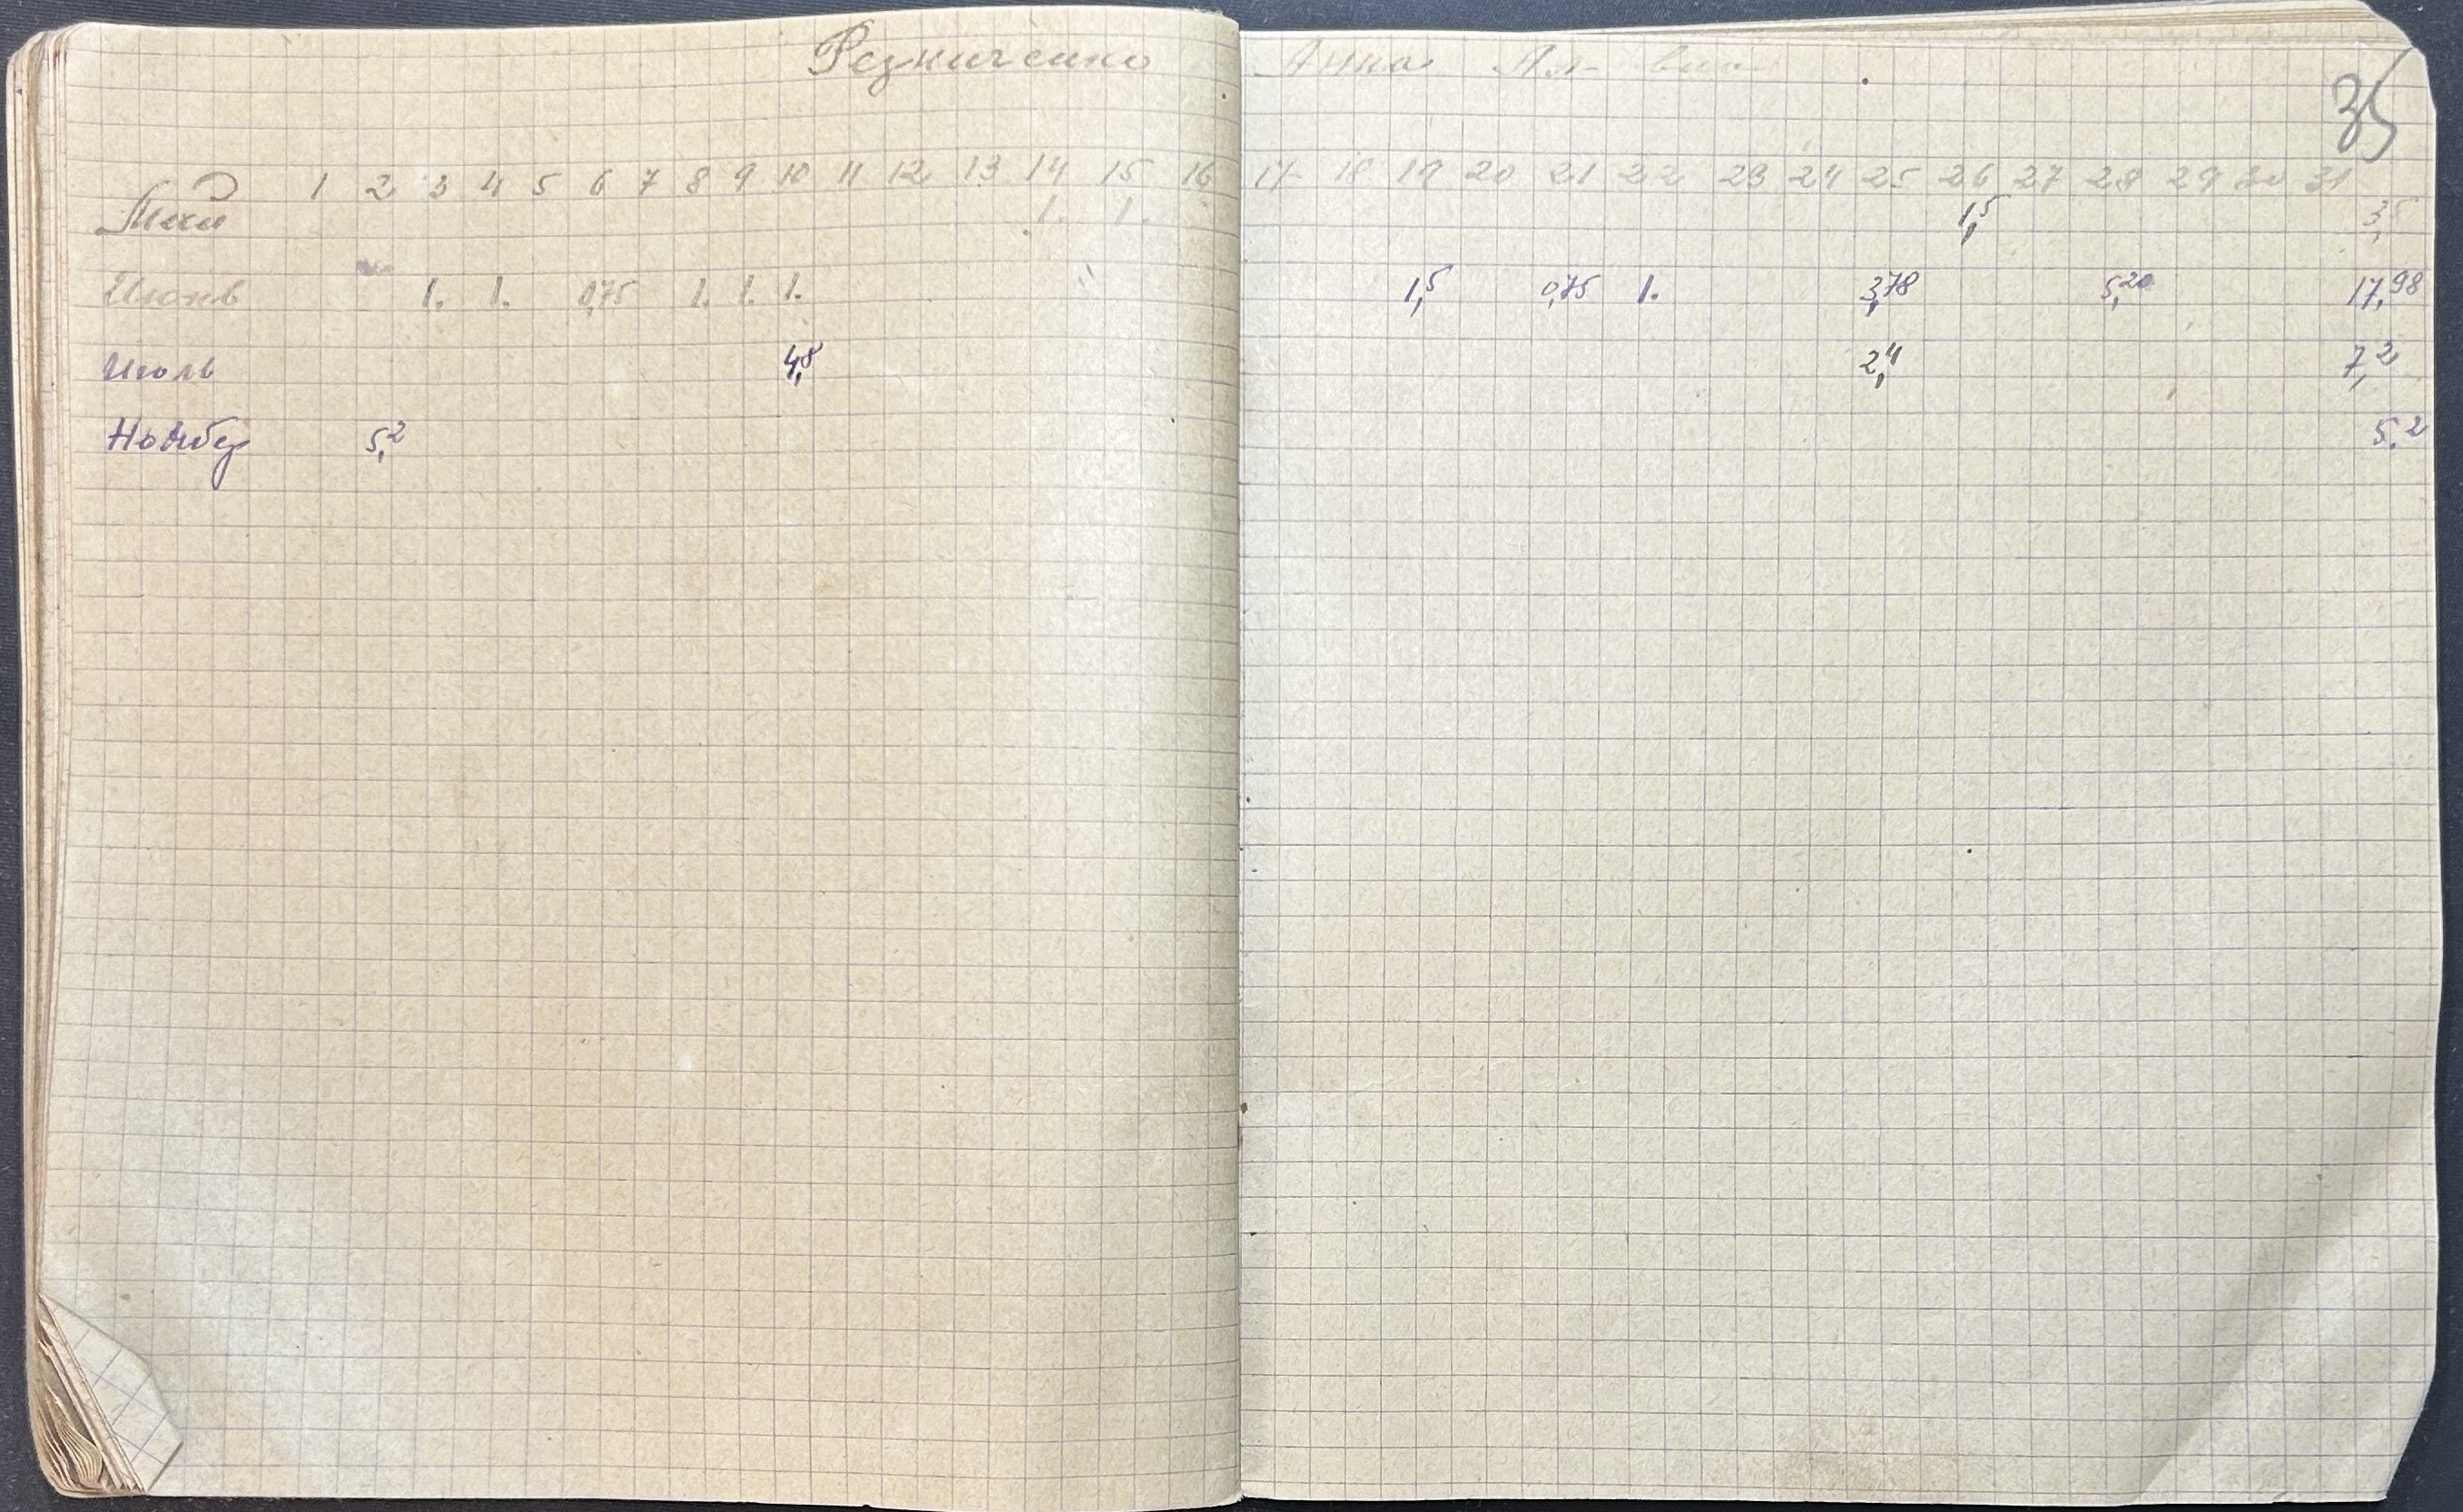 Резниченко Анна
35
1 2 3 4 5 6 7 8 9 10 11 12 13 14 15 16 17 18 19 20 21 22 23 24 25 26 27 28 29 30 31
Май 1. 1. 1,5 3,5
Июнь 1. 1. 0,75 1. 1. 1. 1,5 0,75 1. 3,78 5,20 17,98
Июль 4,8 2,4 7,2
Ноябр 5,2 5.2